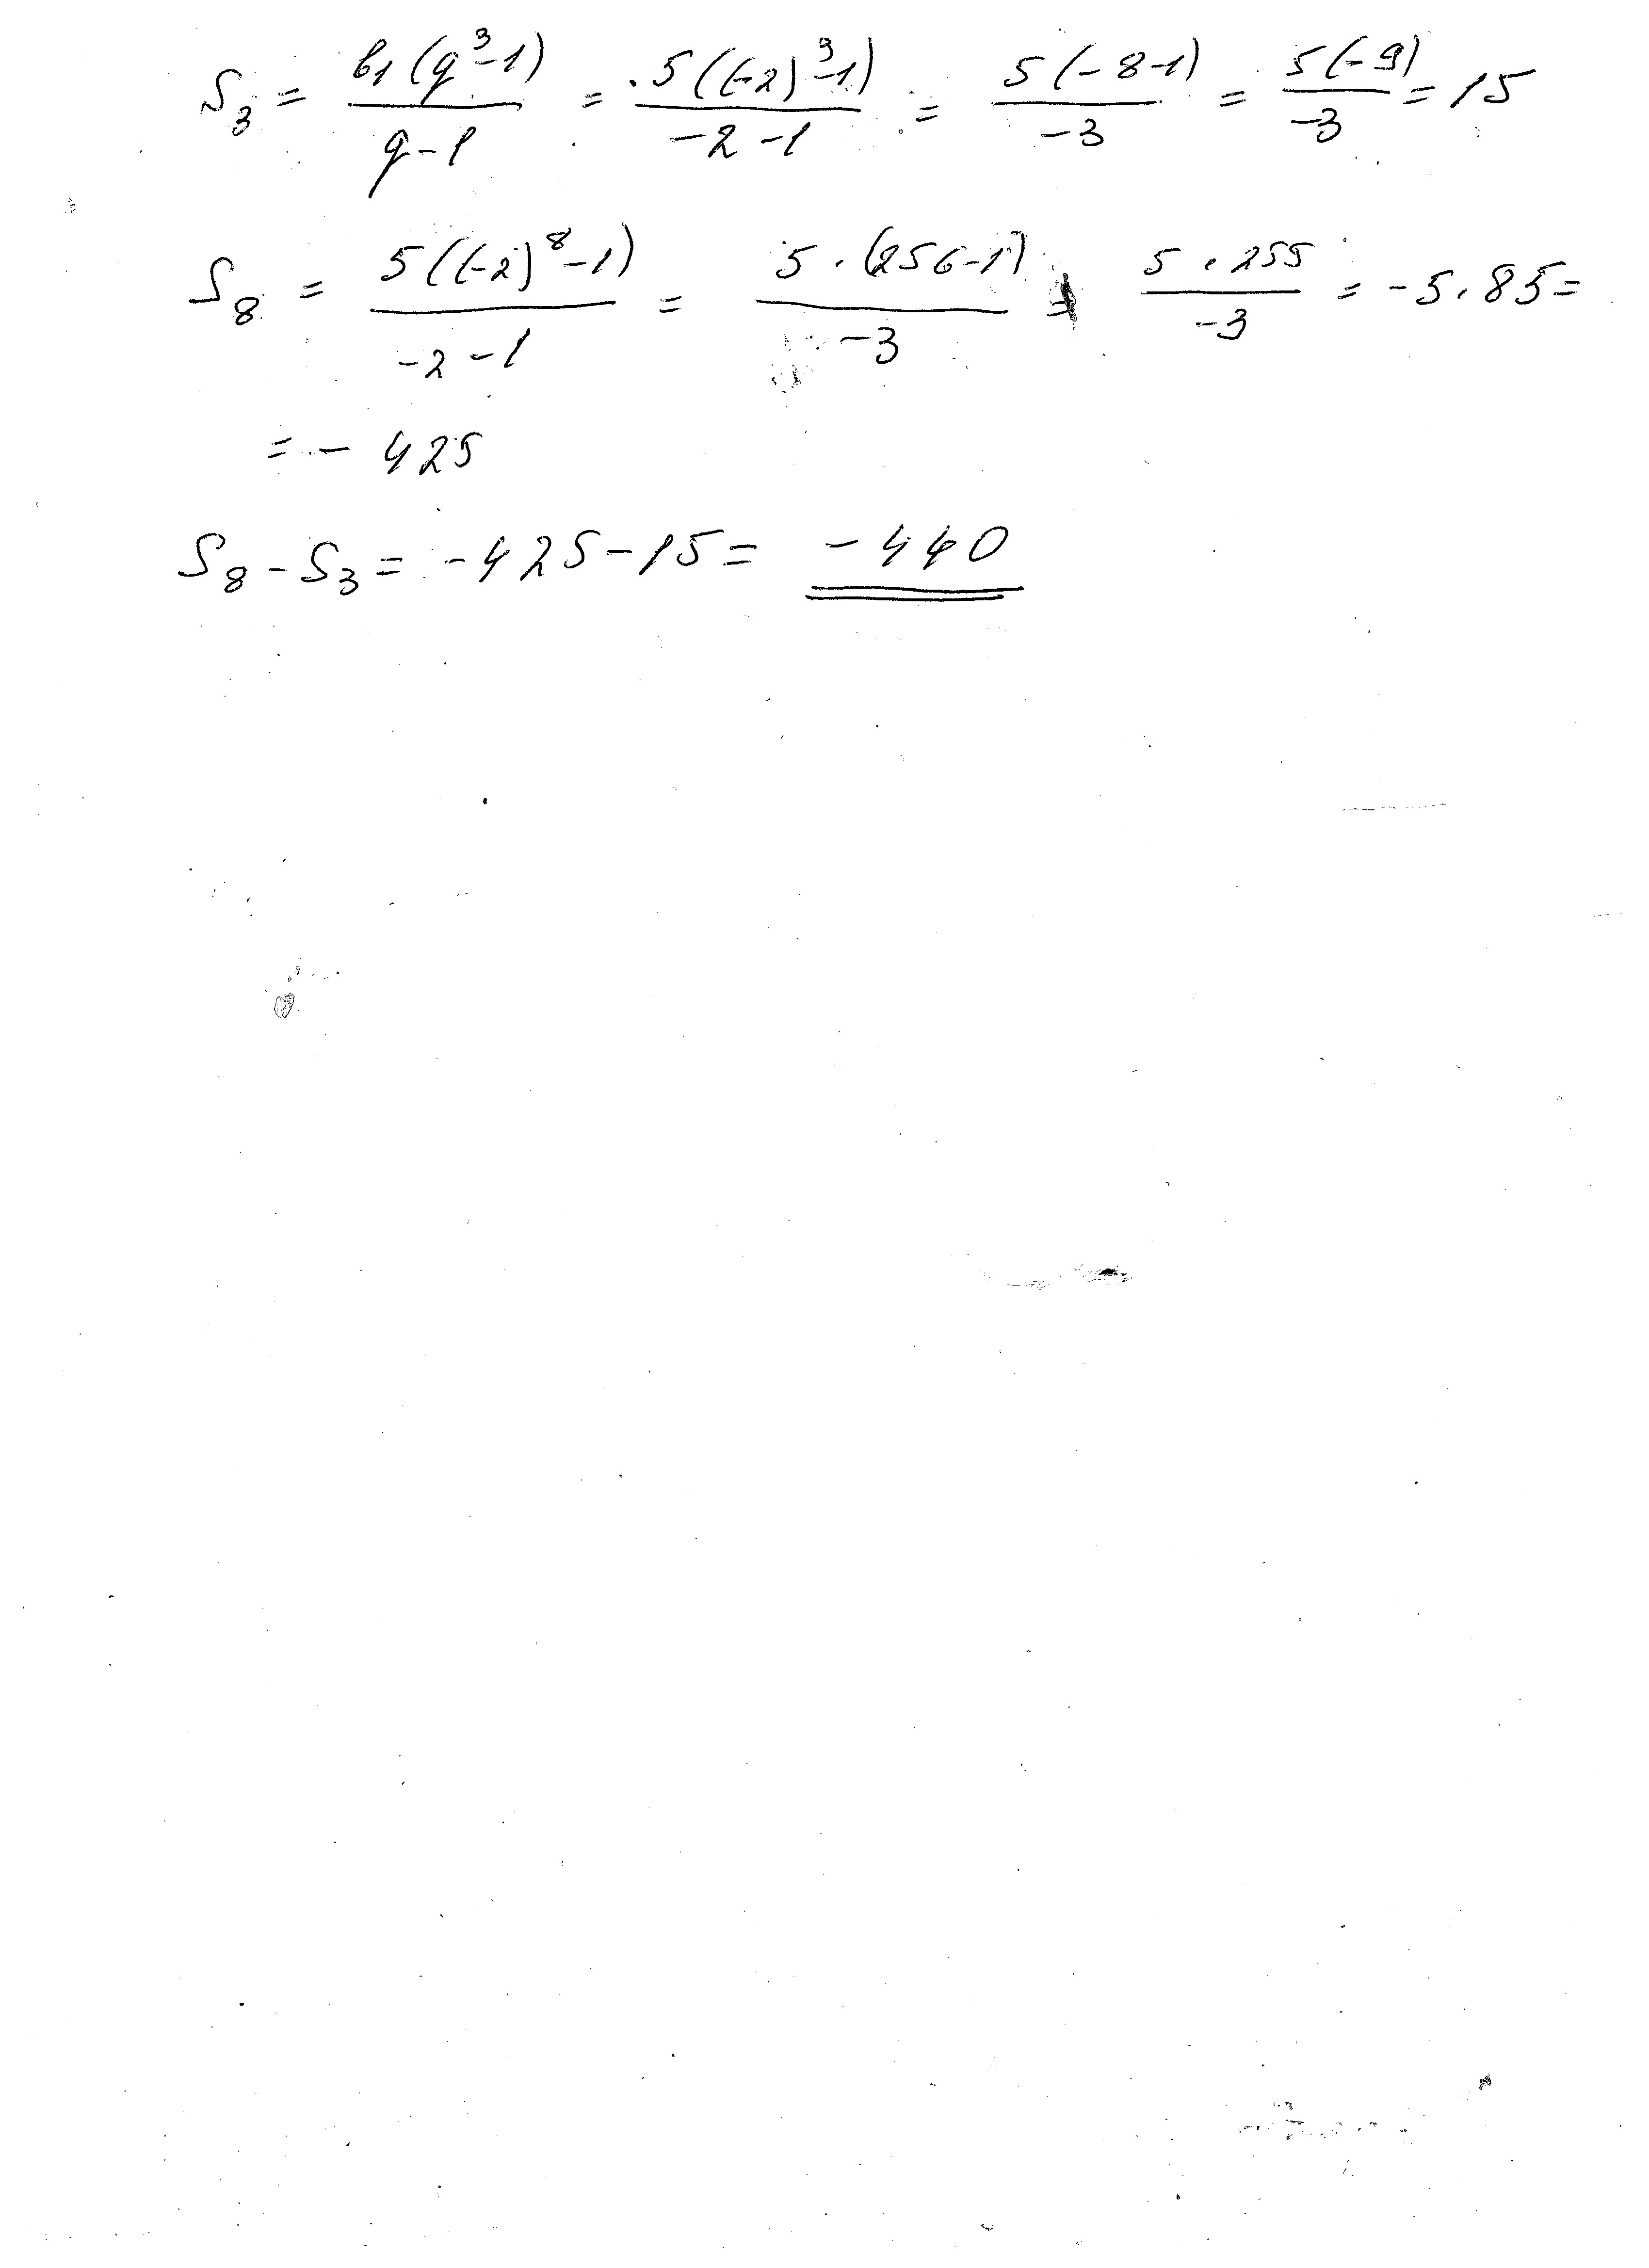 S₃ = b₁(q³-1)/q-1 = 5((-2)³-1)/-2-1 = 5(-8-1)/-3 = 5(-9)/-3 = 15
S₈ = 5((-2)⁸-1)/-2-1 = 5·(256-1)/-3 = 5·255/-3 = -5·85=
= - 425
S₈-S₃= -425-15= -440